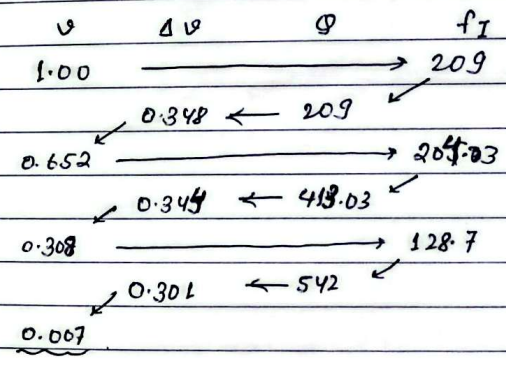 υ Δυ Q f_I
1.00 → 209
0.348 ← 209
0.652 → 204.03
0.344 ← 413.03
0.308 → 128.7
0.301 ← 542
0.007